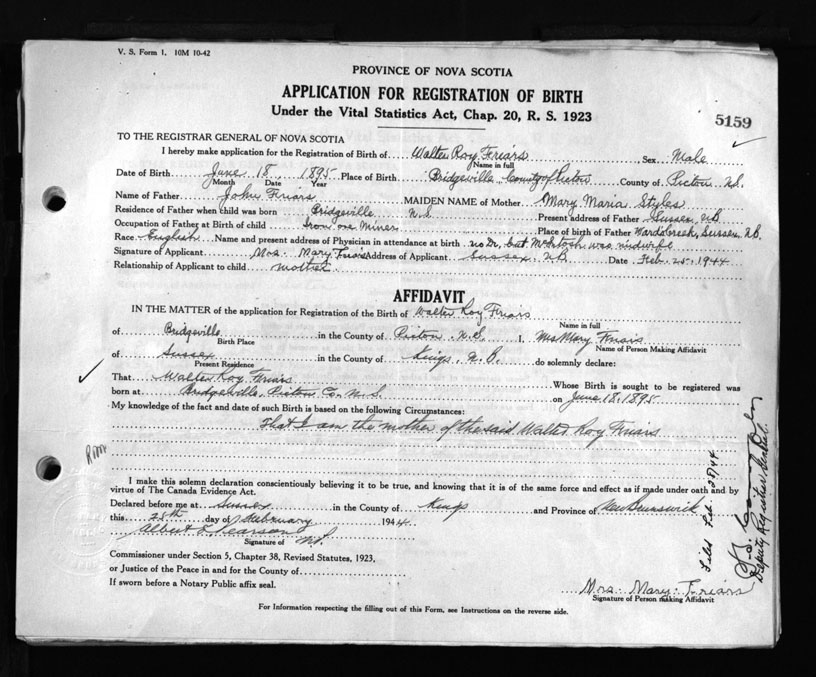 V. S. Form 1. 10M 10-42
PROVINCE OF NOVA SCOTIA
APPLICATION FOR REGISTRATION OF BIRTH
Under the Vital Statistics Act, Chap. 20, R. S. 1923
5159
TO THE REGISTRAR GENERAL OF NOVA SCOTIA
I hereby make application for the Registration of Birth of Walter Roy Friars Sex Male
Name in full
Date of Birth June 18 1895 Place of Birth Bridgeville, County of Pictou County of Pictou N.S.
Month Date Year
Name of Father John Friars MAIDEN NAME of Mother Mary Maria Styles
Residence of Father when child was born Bridgeville N.S. Present address of Father Sussex N.B.
Occupation of Father at Birth of child Iron ore Miner Place of birth of Father Wardsbrook, Sussex N.B.
Race English Name and present address of Physician in attendance at birth no Dr, Cat McIntosh was midwife
Signature of Applicant Mrs. Mary Friars Address of Applicant Sussex, N.B. Date Feb. 25, 1944
Relationship of Applicant to child mother
AFFIDAVIT
IN THE MATTER of the application for Registration of the Birth of Walter Roy Friars
Name in full
of Bridgeville in the County of Pictou N.S. I, Mrs Mary Friars
Birth Place Name of Person Making Affidavit
of Sussex in the County of Kings, N.B. do solemnly declare:
Present Residence
That Walter Roy Friars Whose Birth is sought to be registered was
born at Bridgeville, Pictou Co. N.S. on June 18, 1895
My knowledge of the fact and date of such Birth is based on the following Circumstances:
That I am the mother of the said Walter Roy Friars
I make this solemn declaration conscientiously believing it to be true, and knowing that it is of the same force and effect as if made under oath and by
virtue of The Canada Evidence Act.
Declared before me at Sussex in the County of Kings and Province of New Brunswick
this 25th day of February 1944.
Albert Pearson
Signature of
Commissioner under Section 5, Chapter 38, Revised Statutes, 1923,
or Justice of the Peace in and for the County of
If sworn before a Notary Public affix seal.
Mrs. Mary Friars
Signature of Person making Affidavit
For Information respecting the filling out of this Form, see Instructions on the reverse side.
Filed Feb. 28/44
Deputy Registrar General.